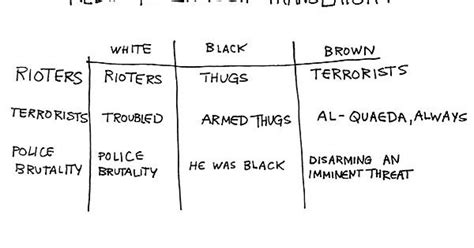 WHITE BLACK BROWN
RIOTERS RIOTERS THUGS TERRORISTS
TERRORISTS TROUBLED ARMED THUGS AL-QUAEDA, ALWAYS
POLICE BRUTALITY
POLICE BRUTALITY
HE WAS BLACK
DISARMING AN
IMMINENT THREAT